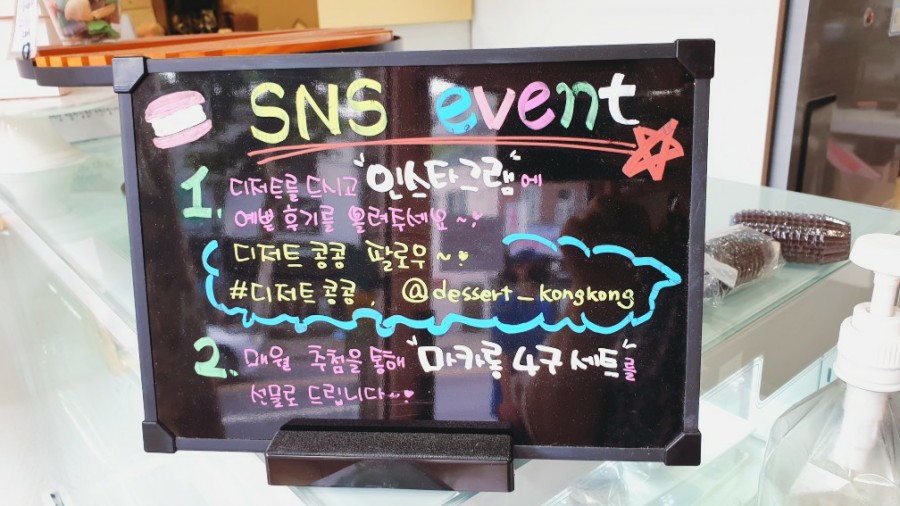 SNS event
1. 디저트를 드시고 "인스타그램"에
예쁜 후기를 올려주세요~
디저트콩콩 팔로우~
#디저트콩콩, @dessert_kongkong
2. 매월 추첨을 통해 "마카롱 4구 세트"를
선물로 드립니다~